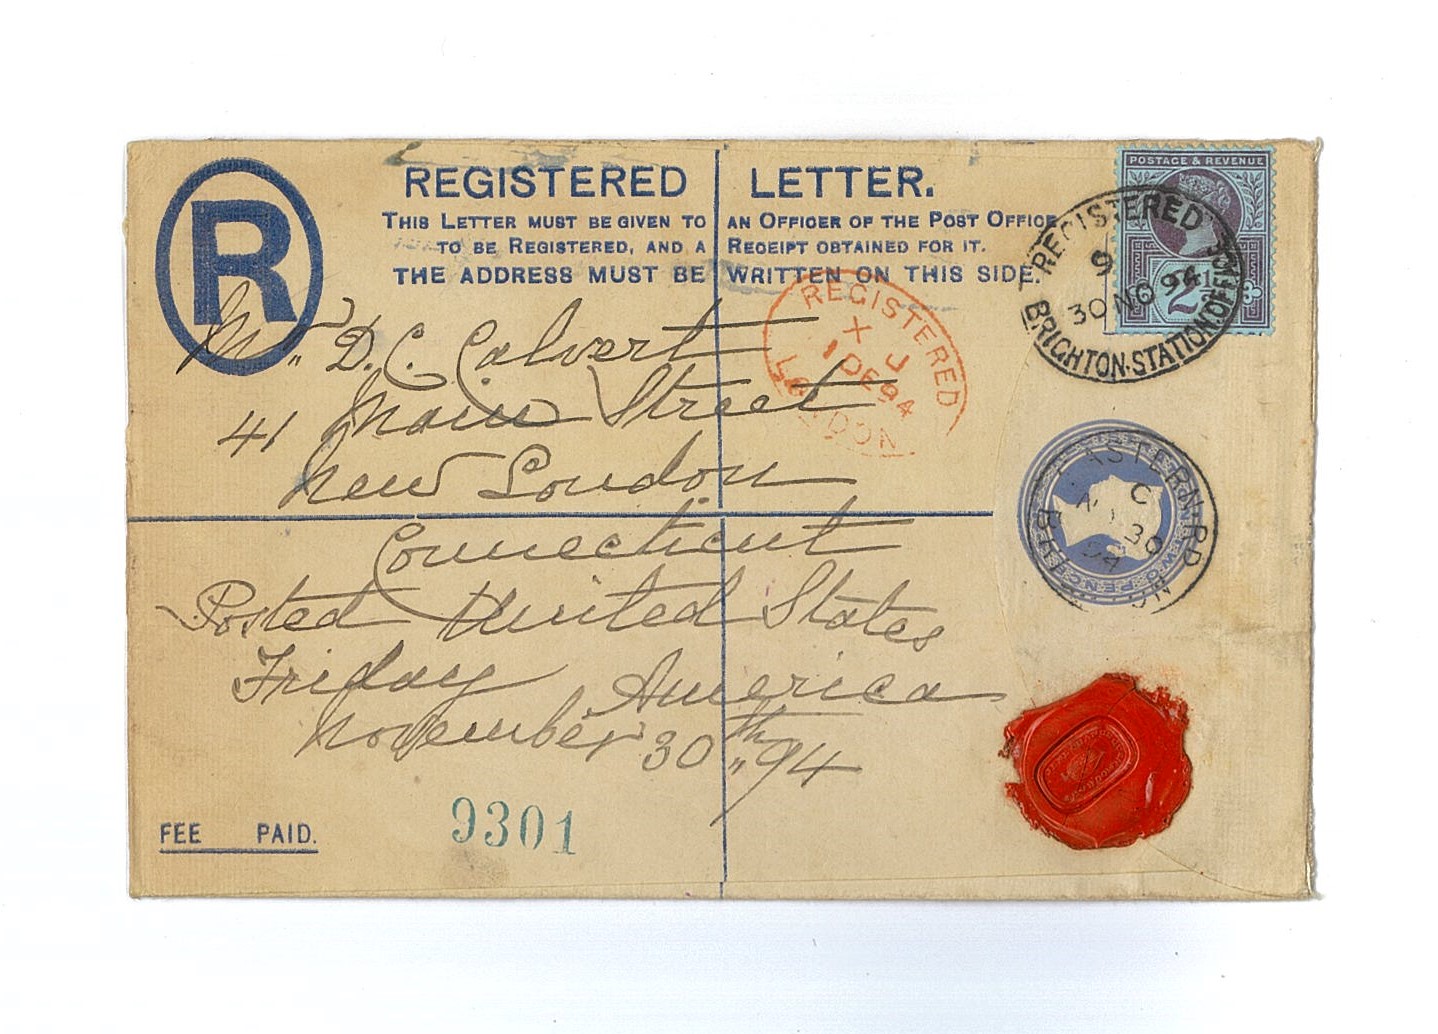 R
REGISTERED LETTER.
THIS LETTER MUST BE GIVEN TO AN OFFICER OF THE POST OFFICE
TO BE REGISTERED, AND A RECEIPT OBTAINED FOR IT.
THE ADDRESS MUST BE WRITTEN ON THIS SIDE.
POSTAGE & REVENUE
2½
REGISTERED
9
30 NO 94
BRIGHTON.STATION.OFFICE
REGISTERED
X J
1 DE 94
LONDON
Mr. D. C. Calvert
41 Main Street
New London
Connecticut
Posted United States
Friday America
November 30th 94
ASTERN RD
C
30
94
TWO PENCE
FEE PAID.
9301